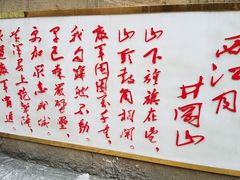 西江月
井岡山
山下旌旗在望,
山头鼓角相闻。
敌军围困万千重,
我自岿然不动。
早已森严壁垒,
更加众志成城。
黄洋界上炮声隆,